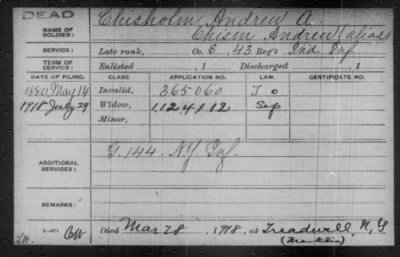 DEAD
NAME OF SOLDIER: Chisholm, Andrew A.
Chism Andrew (alias)
SERVICE: Late rank, Co. G, 43 Reg't Ind. Inf.
TERM OF SERVICE: Enlisted , 1 Discharged , 1
DATE OF FILING. CLASS APPLICATION NO. LAW. CERTIFICATE NO.
1880, May 14 Invalid, 365060
1918 July 29 Widow, 1,124,112
Minor,
ADDITIONAL SERVICES: G. 144. NY Inf.
REMARKS:
Died Mar 28, 1918, at Treadwell, N.Y.
(Franklin)